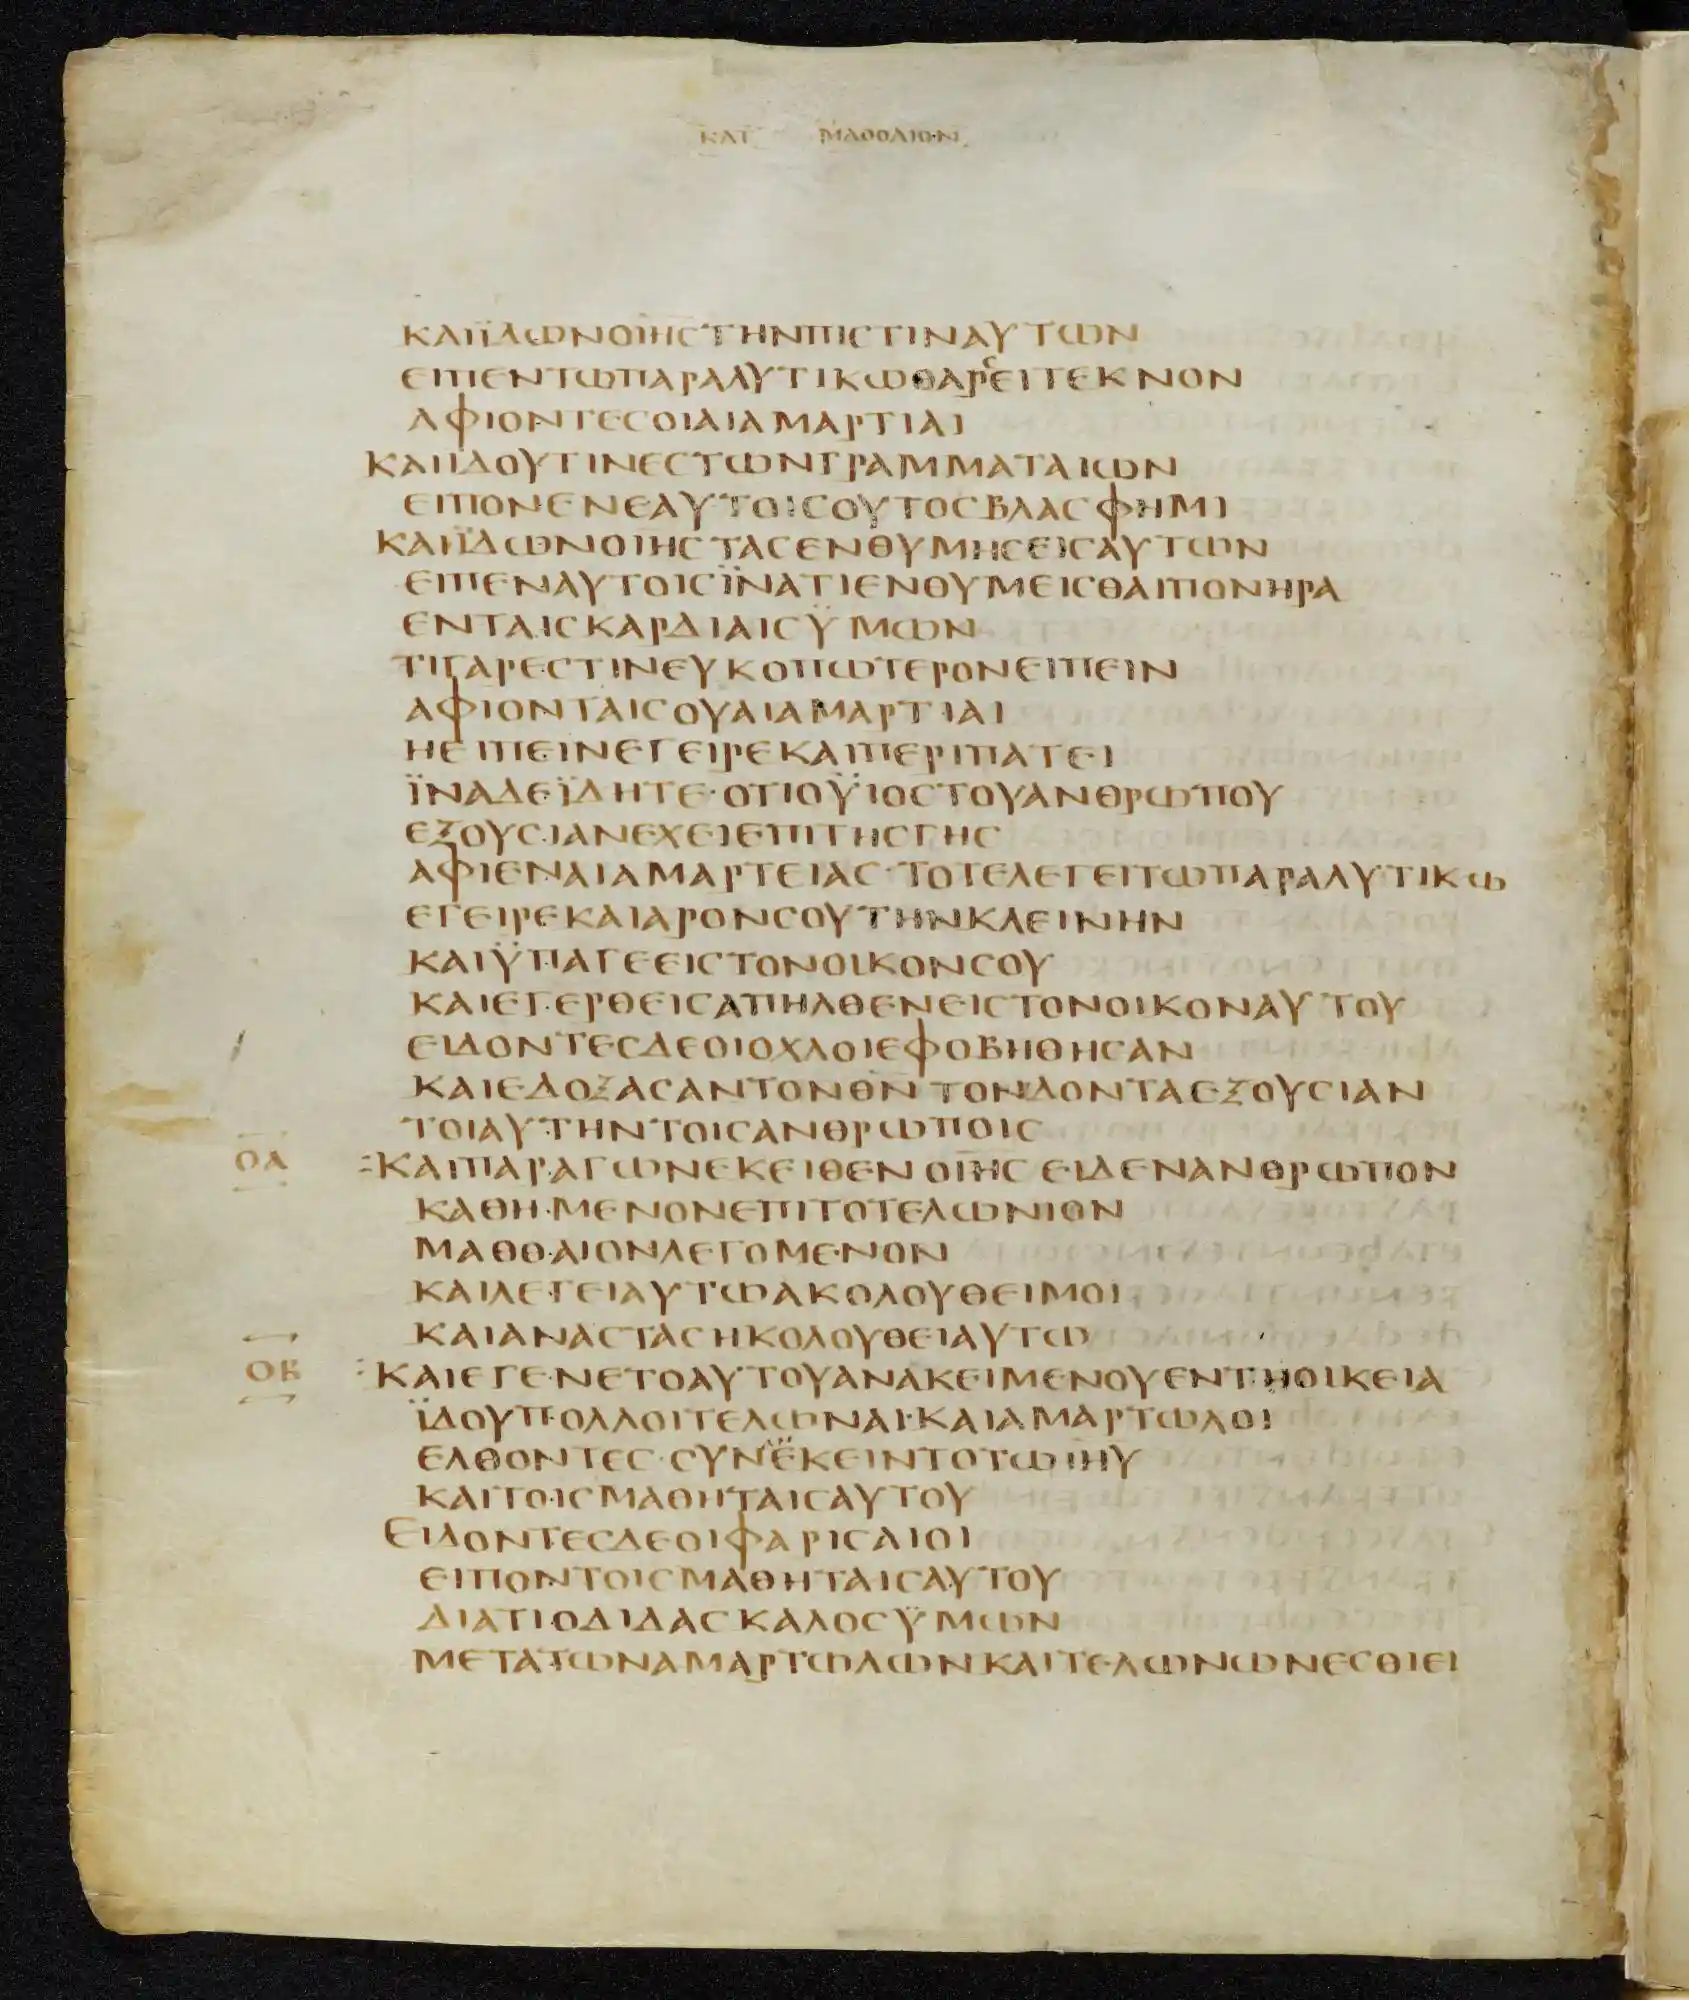 ΚΑΤ ΜΑΘΘΑΙΟΝ
ΚΑΙΪΔΩΝΟΙΗΣΤΗΝΠΙΣΤΙΝΑΥΤΩΝ
ΕΙΠΕΝΤΩΠΑΡΑΛΥΤΙΚΩΘΑΡΣΕΙΤΕΚΝΟΝ
ΑΦΙΟΝΤΕΣΟΙΑΙΑΜΑΡΤΙΑΙ
ΚΑΙΙΔΟΥΤΙΝΕΣΤΩΝΓΡΑΜΜΑΤΑΙΩΝ
ΕΙΠΟΝΕΝΕΑΥΤΟΙΣΟΥΤΟΣΒΛΑΣΦΗΜΙ
ΚΑΙΪΔΩΝΟΙΗΣΤΑΣΕΝΘΥΜΗΣΕΙΣΑΥΤΩΝ
ΕΙΠΕΝΑΥΤΟΙΣΪΝΑΤΙΕΝΘΥΜΕΙΣΘΑΙΠΟΝΗΡΑ
ΕΝΤΑΙΣΚΑΡΔΙΑΙΣΫΜΩΝ
ΤΙΓΑΡΕΣΤΙΝΕΥΚΟΠΩΤΕΡΟΝΕΙΠΕΙΝ
ΑΦΙΟΝΤΑΙΣΟΥΑΙΑΜΑΡΤΙΑΙ
ΗΕΙΠΕΙΝΕΓΕΙΡΕΚΑΙΠΕΡΙΠΑΤΕΙ
ΪΝΑΔΕΪΔΗΤΕ·ΟΤΙΟΫΙΟΣΤΟΥΑΝΘΡΩΠΟΥ
ΕΞΟΥΣΙΑΝΕΧΕΙΕΠΙΤΗΣΓΗΣ
ΑΦΙΕΝΑΙΑΜΑΡΤΕΙΑΣ·ΤΟΤΕΛΕΓΕΙΤΩΠΑΡΑΛΥΤΙΚΩ
ΕΓΕΙΡΕΚΑΙΑΡΟΝΣΟΥΤΗΝΚΛΕΙΝΗΝ
ΚΑΙΫΠΑΓΕΕΙΣΤΟΝΟΙΚΟΝΣΟΥ
ΚΑΙΕΓΕΡΘΕΙΣΑΠΗΛΘΕΝΕΙΣΤΟΝΟΙΚΟΝΑΥΤΟΥ
ΕΙΔΟΝΤΕΣΔΕΟΙΟΧΛΟΙΕΦΟΒΗΘΗΣΑΝ
ΚΑΙΕΔΟΞΑΣΑΝΤΟΝΘΝΤΟΝΔΟΝΤΑΕΞΟΥΣΙΑΝ
ΤΟΙΑΥΤΗΝΤΟΙΣΑΝΘΡΩΠΟΙΣ
ΟΑ ΚΑΙΠΑΡΑΓΩΝΕΚΕΙΘΕΝΟΙΗΣΕΙΔΕΝΑΝΘΡΩΠΟΝ
ΚΑΘΗΜΕΝΟΝΕΠΙΤΟΤΕΛΩΝΙΟΝ
ΜΑΘΘΑΙΟΝΛΕΓΟΜΕΝΟΝ
ΚΑΙΛΕΓΕΙΑΥΤΩΑΚΟΛΟΥΘΕΙΜΟΙ
ΚΑΙΑΝΑΣΤΑΣΗΚΟΛΟΥΘΕΙΑΥΤΩ
ΟΒ ΚΑΙΕΓΕΝΕΤΟΑΥΤΟΥΑΝΑΚΕΙΜΕΝΟΥΕΝΤΗΟΙΚΕΙΑ
ΪΔΟΥΠΟΛΛΟΙΤΕΛΩΝΑΙ·ΚΑΙΑΜΑΡΤΩΛΟΙ
ΕΛΘΟΝΤΕΣ·ΣΥΝΕΚΕΙΝΤΟΤΩΙΗΥ
ΚΑΙΤΟΙΣΜΑΘΗΤΑΙΣΑΥΤΟΥ
ΕΙΔΟΝΤΕΣΔΕΟΙΦΑΡΙΣΑΙΟΙ
ΕΙΠΟΝΤΟΙΣΜΑΘΗΤΑΙΣΑΥΤΟΥ
ΔΙΑΤΙΟΔΙΔΑΣΚΑΛΟΣΫΜΩΝ
ΜΕΤΑΤΩΝΑΜΑΡΤΩΛΩΝΚΑΙΤΕΛΩΝΩΝΕΣΘΙΕΙ